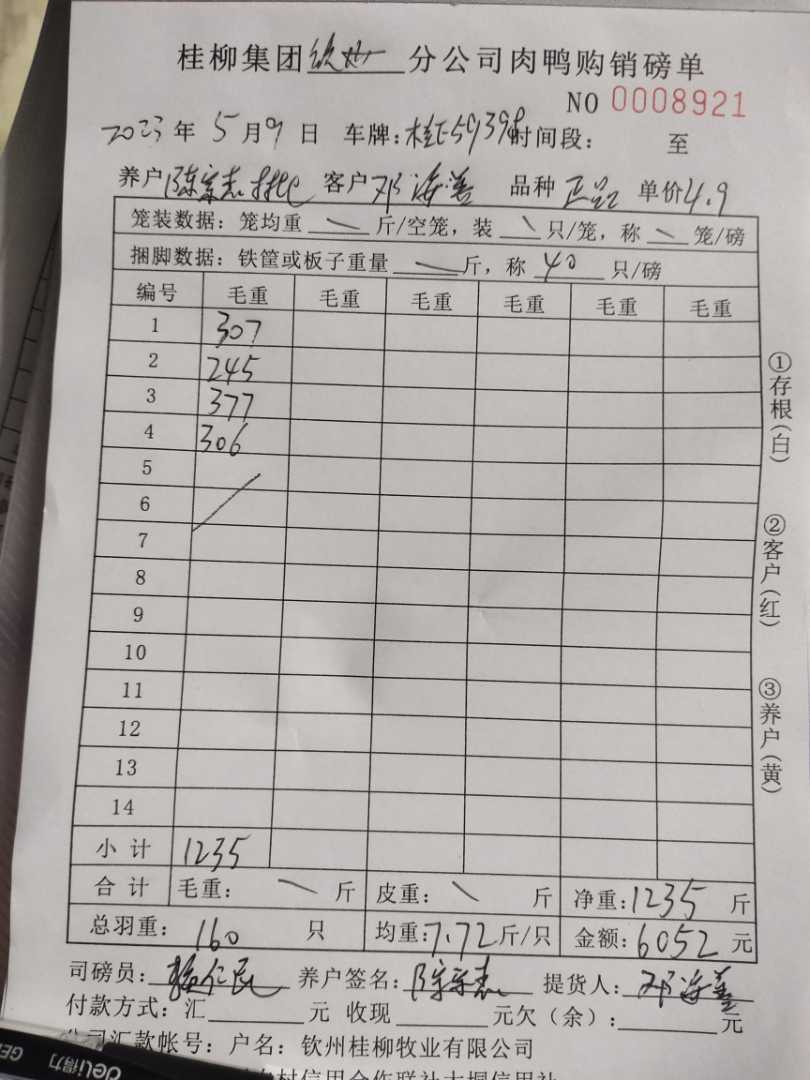 桂柳集团钦州分公司肉鸭购销磅单
NO 0008921
2023年5月9日 车牌: 时间段: 至
养户 陈宗志 客户 邓海善 品种 正品 单价4.9
笼装数据: 笼均重 \ 斤/空笼, 装 \ 只/笼, 称 \ 笼/磅
捆脚数据: 铁筐或板子重量 \ 斤, 称 40 只/磅
编号 毛重 毛重 毛重 毛重 毛重 毛重
1 307
2 245
3 377
4 306
5
6
7
8
9
10
11
12
13
14
小计 1235
合计 毛重: \ 斤 皮重: \ 斤 净重:1235 斤
总羽重: 160 只 均重:7.72斤/只 金额:6052元
司磅员: 养户签名:陈宗志 提货人: 邓海善
付款方式:汇 元 收现 元欠(余): 元
公司汇款帐号: 户名: 钦州桂柳牧业有限公司
村信用合作联社大垌信用社
①存根(白)
②客户(红)
③养户(黄)
deli得力